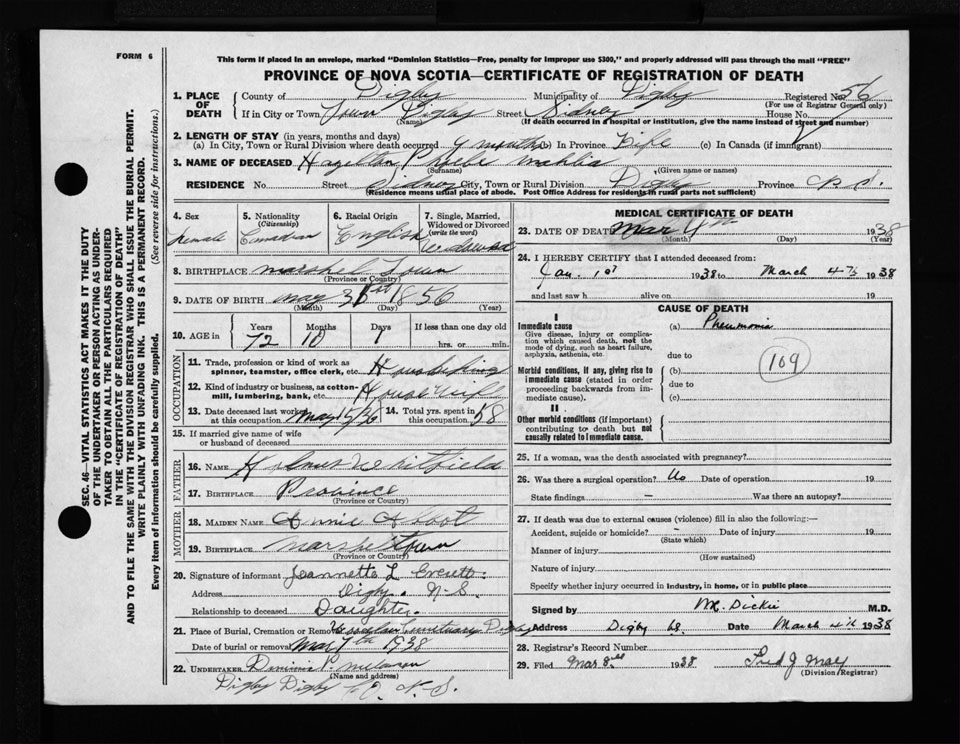 FORM 6
This form if placed in an envelope, marked "Dominion Statistics—Free, penalty for improper use $300," and properly addressed will pass through the mail "FREE"
PROVINCE OF NOVA SCOTIA—CERTIFICATE OF REGISTRATION OF DEATH
1. PLACE OF DEATH County of Digby Municipality of Digby Registered No. 56
(For use of Registrar General only)
If in City or Town Town Digby Street Sidney House No.
(Name) (If death occurred in a hospital or institution, give the name instead of street and number)
2. LENGTH OF STAY (in years, months and days)
(a) In City, Town or Rural Division where death occurred 9 months (b) In Province Life (c) In Canada (if immigrant)
3. NAME OF DECEASED Hazelton Phoebe
(Surname) (Given name or names)
RESIDENCE No. Street Sidney City, Town or Rural Division Digby Province N. S.
(Residence means usual place of abode. Post Office Address for residents in rural parts not sufficient)
4. Sex Female
5. Nationality (Citizenship) Canadian
6. Racial Origin English
7. Single, Married, Widowed or Divorced (write the word) Widowed
8. BIRTHPLACE Marshel Town
(Province or Country)
9. DATE OF BIRTH May 31st 1856
(Month) (Day) (Year)
10. AGE in Years 72 Months 10 Days If less than one day old hrs. or min.
OCCUPATION
11. Trade, profession or kind of work as spinner, teamster, office clerk, etc.
12. Kind of industry or business, as cotton-mill, lumbering, bank, etc. House Wife
13. Date deceased last worked at this occupation May 15/36
14. Total yrs. spent in this occupation 58
15. If married give name of wife or husband of deceased
FATHER
16. NAME Holmes Whitfield
17. BIRTHPLACE Province
(Province or Country)
MOTHER
18. MAIDEN NAME Annie
19. BIRTHPLACE Marshel Town
(Province or Country)
20. Signature of informant Jeannette L Everett.
Address Digby. N-S.
Relationship to deceased Daughter.
21. Place of Burial, Cremation or Removal Cemetery Digby
Date of burial or removal Mar 7th 1938
22. UNDERTAKER
(Name and address)
Digby Digby Co. N. S.
MEDICAL CERTIFICATE OF DEATH
23. DATE OF DEATH Mar 4th 1938
(Month) (Day) (Year)
24. I HEREBY CERTIFY that I attended deceased from:
Jan. 1st 1938 to March 4th 1938
and last saw h alive on 19
CAUSE OF DEATH
I
Immediate cause (a) Pneumonia
Give disease, injury or complication which caused death, not the mode of dying, such as heart failure, asphyxia, asthenia, etc.
due to
109
Morbid conditions, if any, giving rise to immediate cause (stated in order proceeding backwards from immediate cause).
(b)
due to
(c)
II
Other morbid conditions (if important) contributing to death but not causally related to immediate cause.
25. If a woman, was the death associated with pregnancy?
26. Was there a surgical operation? No Date of operation 19
State findings — Was there an autopsy?
27. If death was due to external causes (violence) fill in also the following:—
Accident, suicide or homicide? – Date of injury 19
(State which)
Manner of injury
(How sustained)
Nature of injury
Specify whether injury occurred in industry, in home, or in public place
Signed by Dickie M.D.
Address Digby NS. Date March 4th 1938
28. Registrar's Record Number
29. Filed Mar 8th 1938 Fred J May
(Division Registrar)
SEC. 46—VITAL STATISTICS ACT MAKES IT THE DUTY
OF THE UNDERTAKER OR PERSON ACTING AS UNDER-
TAKER TO OBTAIN ALL THE PARTICULARS REQUIRED
IN THE "CERTIFICATE OF REGISTRATION OF DEATH"
AND TO FILE THE SAME WITH THE DIVISION REGISTRAR WHO SHALL ISSUE THE BURIAL PERMIT.
WRITE PLAINLY WITH UNFADING INK. THIS IS A PERMANENT RECORD.
Every item of information should be carefully supplied. (See reverse side for instructions.)